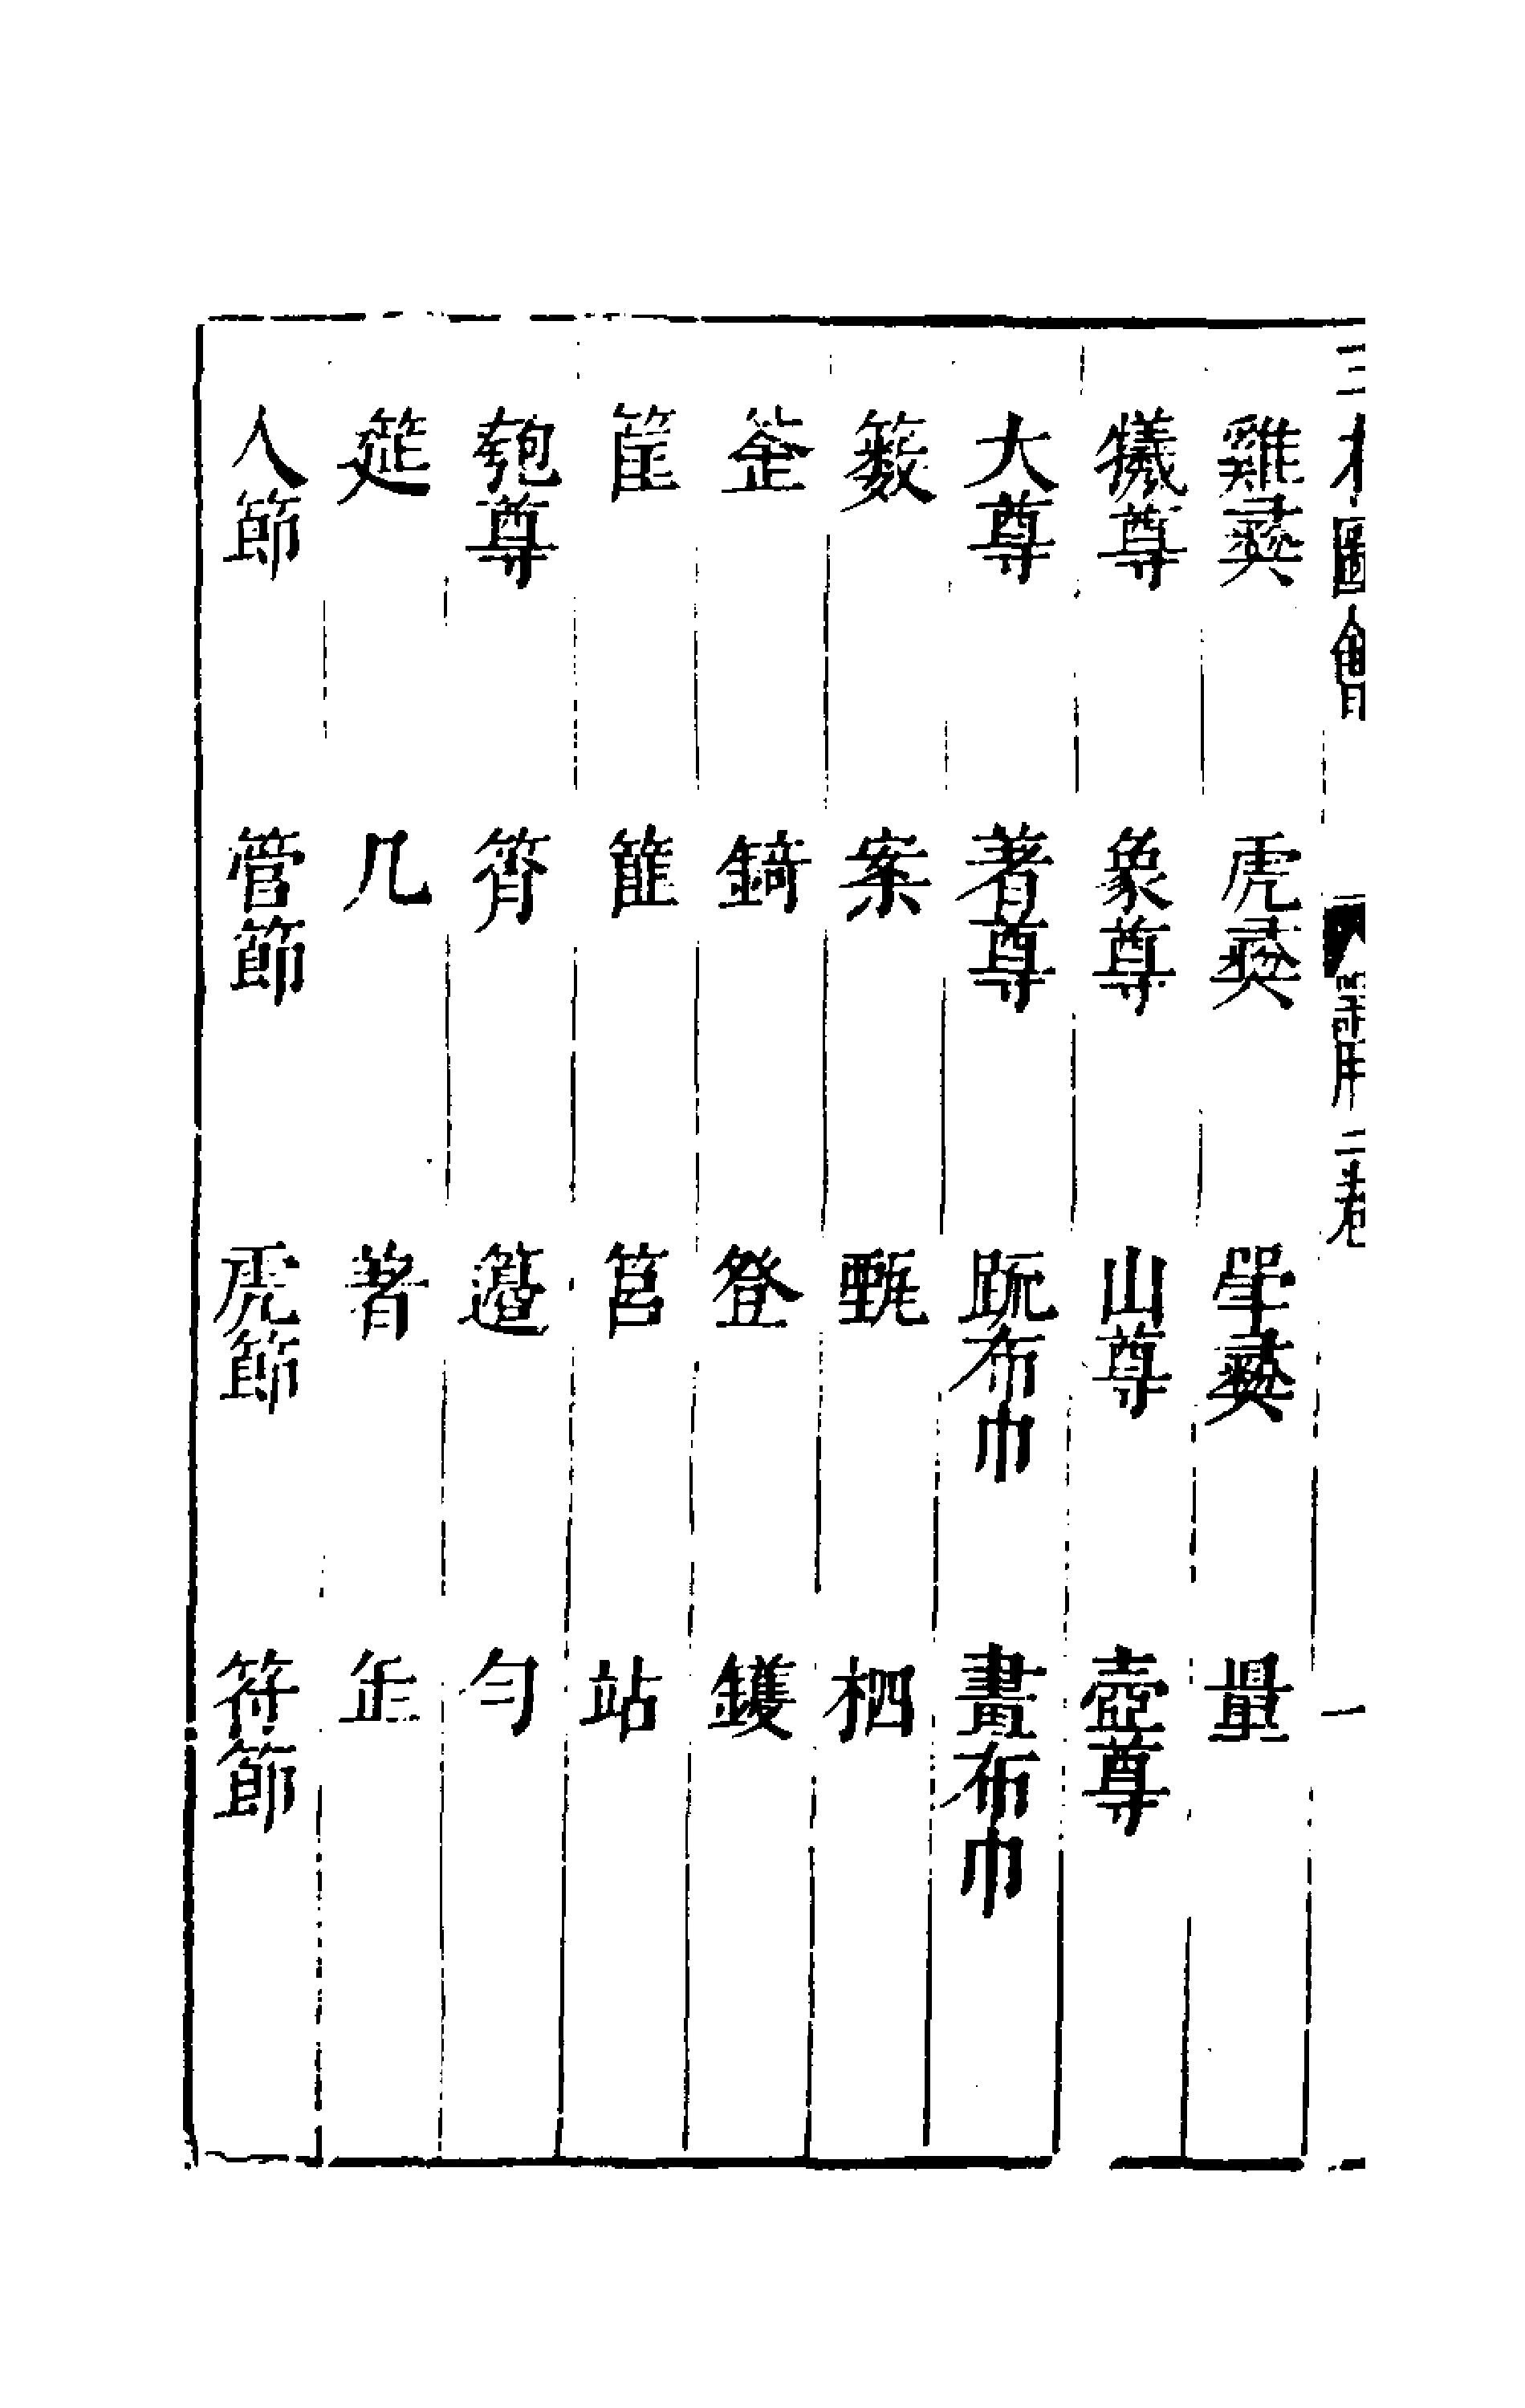 三才圖會 器用二卷 一
雞彝 虎彝 斝彝 量
犧尊 象尊 山尊 壺尊
大尊 著尊 疏布巾 畫布巾
籔 案 甄 柶
錡 登 鑊
筐 篚 筥 站
匏尊 筲 籩 勻
筵 几 蓍
人節 管節 虎節 符節